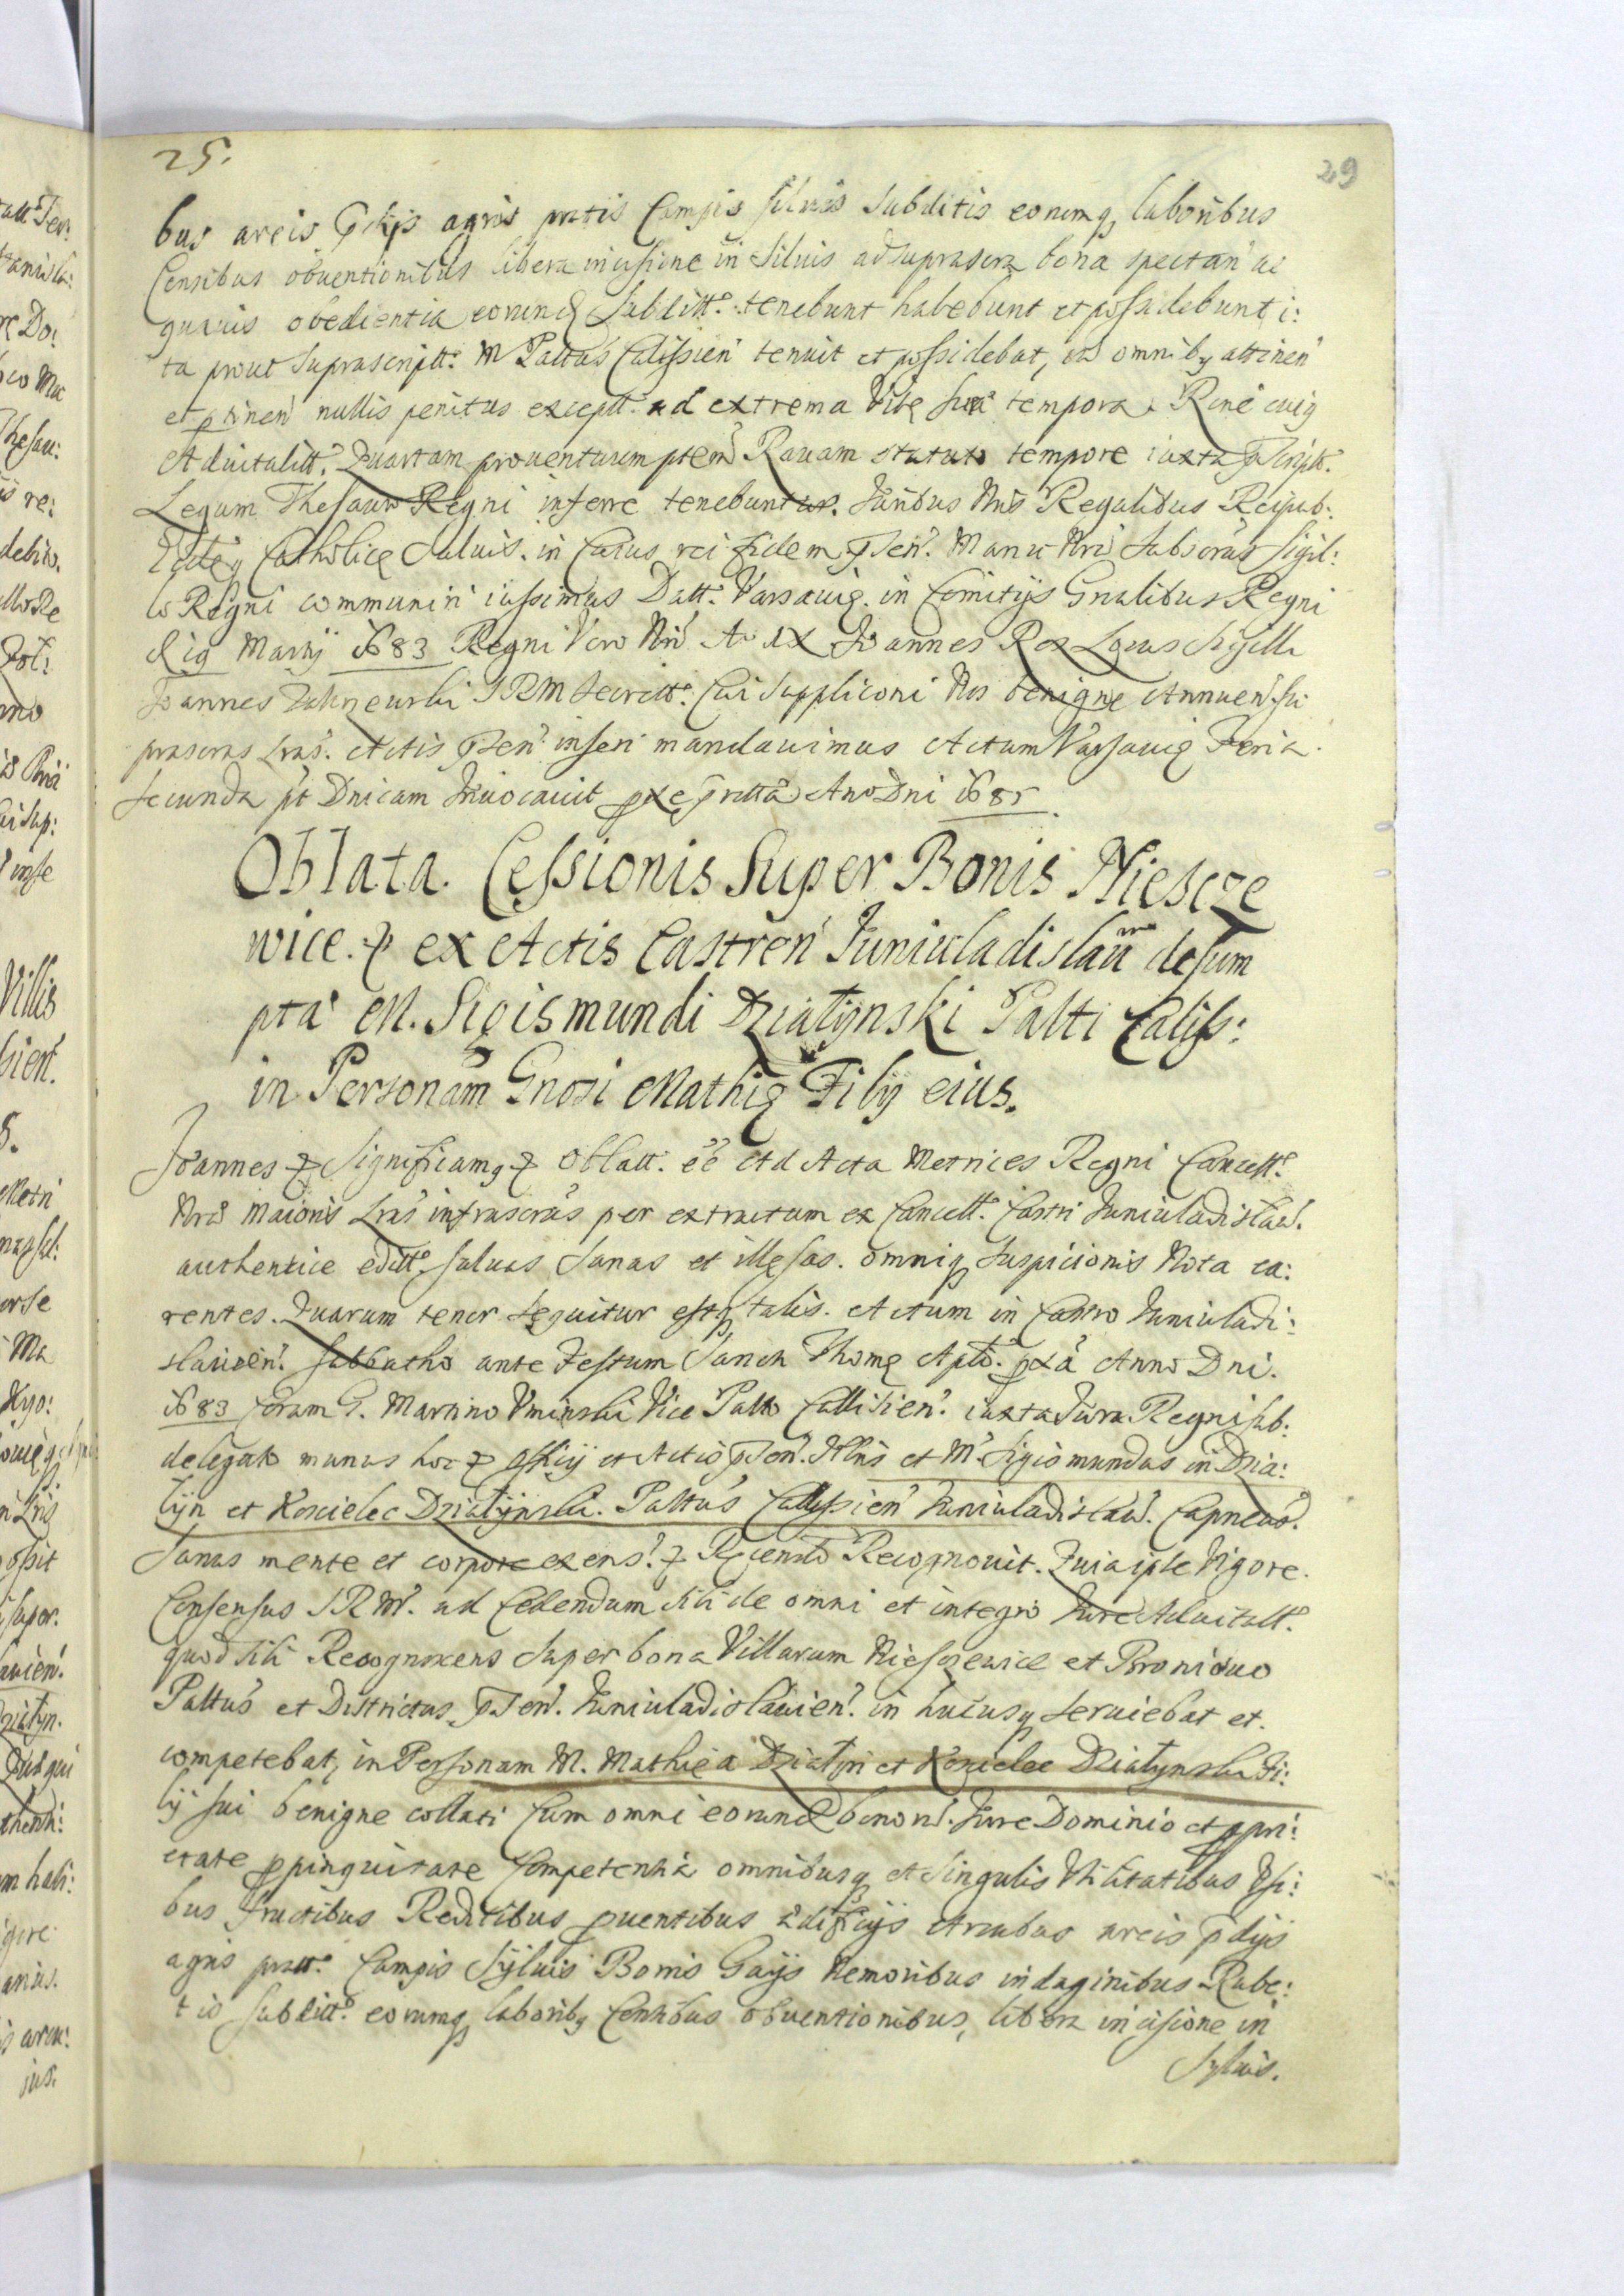 25.
29
bus areis agris pratis Campis siluis Subditis eorumq laboribus
Censibus obuentionibus libera incisione in Siluis ad suprascra bona spectan ac
quauis obedientia eorund Subditt. tenebunt habebunt et possidebunt i:
ta prout Suprascriptt. M Palttus Calissien tenuit et possidebat, cu omniby attinen
et ptinen nullis penitus exceptt. ad extrema Vitę suę tempora. Rone cuiq
Aduitalitt. Quartam prouentuum ptem Rauam statuto tempore iuxta pscriptt.
Legum Thesauro Regni inferre tenebuntur. Juribus Nris Regalibus Reipub:
Catholicę Saluis. in Cuius rei fidem psen. Manu Nra Subscras Sigil:
lo Regni communiri iussimus Datt. Varsauię. in Comitijs Gnalibus Regni
Martij 1683 Regni Vero Nri Ao IX Joannes Rex Locus Sigilli
Joannes SRM Secrett. Cui Supplicõni Nos benigne Annuen. su
prascras Lras. Actis psen. inseri mandauimus Actum Varsauię Feria.
Secunda pt Dnicam Inuocauit Ano Dni 1685.
Oblata. Cessionis Super Bonis Niescze
wice. & ex Actis Castren Juniuladislau desum
pta M. Sigismundi Działynski Paltti Caliss:
in Personam Gnosi Mathię Filij eius.
Joannes & Significamq & Oblatt. ee Ad Acta Metrices Regni Cancett.
Nra Maioris Lras infrascras per extractum ex Cancett. Castri Juniuladislau.
authentice editt. saluas Sanas et illęsas. omniq Suspicionis Nota ca:
rentes. Quarum tenor Sequitur estq talis. Actum in Castro Juniuladi:
slauien. Sabbatho ante Festum Sancti Thomę Aplo. pxa Anno Dni.
1683 Coram G. Martino Vminski Vice Paltto Callisien. iuxta Jura Regni sub:
delegato munus hoc & Officij et Actis psen. Illris et M. Sigismundus in Dzia:
łyn et Koscielec Działynski. Palttus Callissien Juniuladislau. Capneus.
Sanus mente et corpore exens. & Recognouit. Quia ipse Vigore.
Consensus SRM. ad Cedendum Sibi de omni et integro Jure Aduitalt.
quod Sibi Recognoscens Super bona Villarum Niesczewice et Broniewo
Palttus et Districtus psen. Juniuladislauien. in hucusq Seruiebat et.
competebat, in Personam M. Mathię a Działyn et Koscielec Działynski Fi:
lij sui benigne collati Cum omni eorund bonoru. Jure Dominio et ppri:
etate ppinquitate Competentia omnibusq et Singulis Vtilitatibus Vsi:
bus fructibus Reditibus puentibus ædificijs Areabus areis pdijs
agris pratt. Campis Syluis Borris Gaijs Nemoribus indaginibus Rube:
tis Subditt. eorumq laboriby Censibus obuentionibus, libera incisione in
Syluis.